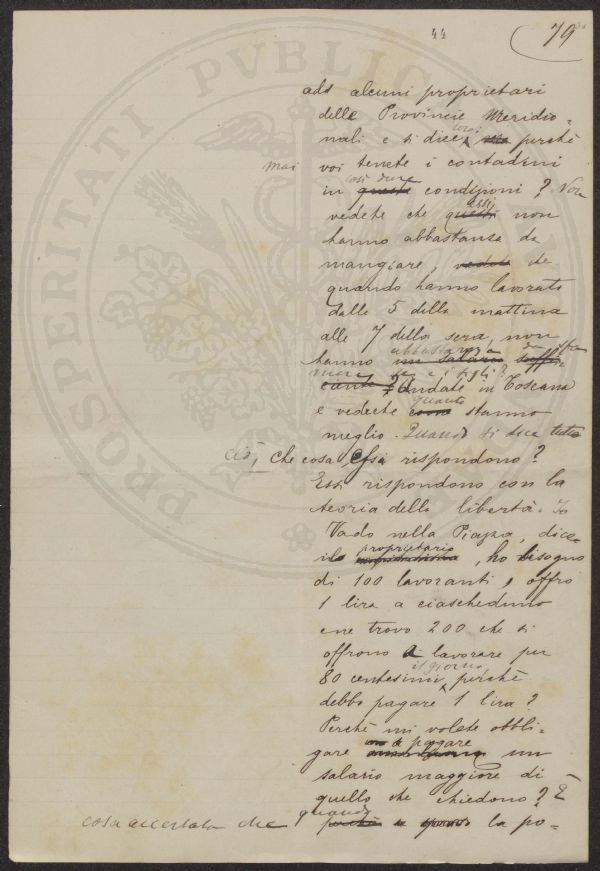 44
79
PROSPERITATI PVBLIC
ad alcuni proprietari
delle Provincie Meridio=
nali e si dice loro: perchè
mai voi tenete i contadini
in queste così dure condizioni? Non
vedete che questi essi non
hanno abbastanza da
mangiare, che
quando hanno lavorato
dalle 5 della mattina
alle 7 della sera, non
hanno un salario suffi=
abbastanza da sfa
mare se e i figli?
ciente? Andate in Toscana
e vedrete come quanto stanno
meglio. Quando si dica tutto
ciò, che cosa essi rispondono?
Essi rispondono con la
teoria della libertà. Io
Vado nella Piazza, dice
il proprietario, ho bisogno
di 100 lavoranti, offro
1 lira a ciascheduno
ene trovo 200 che si
offrono a lavorare per
80 centesimi il giorno, perchè
debbo pagare 1 lira?
Perchè mi volete obbli=
gare a pagare un
salario maggiore di
quello che chiedono? È
cosa accertata che quando la po-